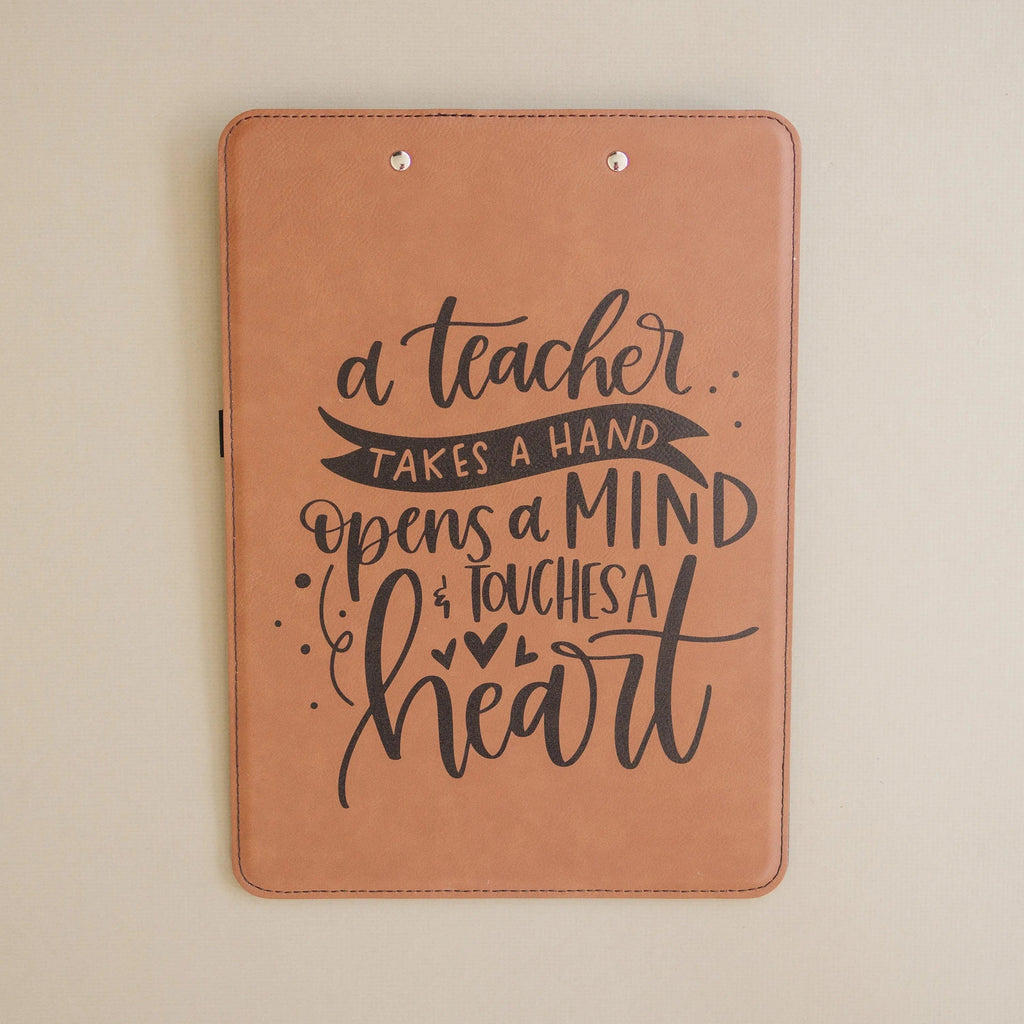 a teacher
TAKES A HAND
opens a MIND
& TOUCHES A
heart